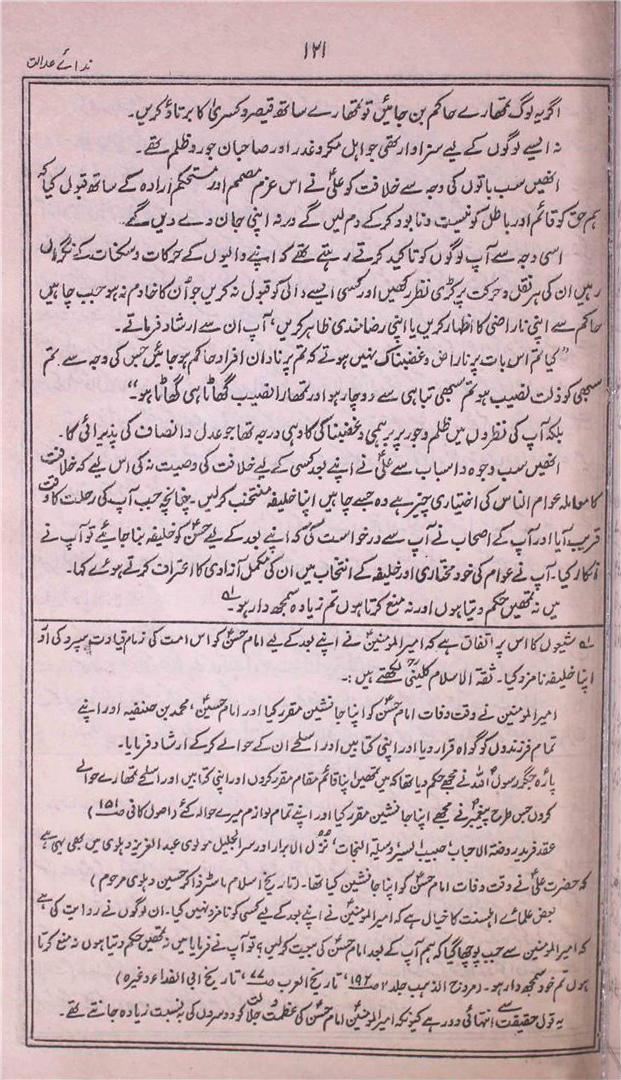 ۱۲۱
ندائے عدالت
اگر یہ لوگ تمھارے حاکم بن جائیں تو تمھارے ساتھ قیصر و کسریٰ کا برتاؤ کریں۔
نہ ایسے لوگوں کے لیے سزاوار تھی جو اہل مکر و غدر اور صاحبان جور و ظلم تھے۔
انھیں سب باتوں کی وجہ سے خلافت کو علیؑ نے اس عزم مصمم اور مستحکم ارادہ کے ساتھ قبول کیا کہ
ہم حق کو قائم اور باطل کو نیست و نابود کرکے دم لیں گے ورنہ اپنی جان دے دیں گے
اسی وجہ سے آپ لوگوں کو تاکید کرتے رہتے تھے کہ اپنے والیوں کے حرکات و سکنات کے نگراں
رہیں ان کی ہر نقل و حرکت پر کڑی نظر رکھیں اور کسی ایسے والی کو قبول نہ کریں جو ان کا خادم نہ ہو جب چاہیں
حاکم سے اپنی ناراضی کا اظہار کریں یا اپنی رضامندی ظاہر کریں، آپ ان سے ارشاد فرماتے۔
”کیا تم اس بات پر ناراض و غضبناک نہیں ہوتے کہ تم پر نادان افراد حاکم ہو جائیں جس کی وجہ سے تم
سبھی کو ذلت نصیب ہو تم سبھی تباہی سے دوچار ہو اور تمھارا نصیب گھاٹا ہی گھاٹا ہو۔“
بلکہ آپ کی نظروں میں ظلم و جور پر برہمی و غضبناکی کا وہی درجہ تھا جو عدل و انصاف کی پذیرائی کا۔
انھیں سب وجوہ و اسباب سے علیؑ نے اپنے بعد کسی کے لیے خلافت کی وصیت نہ کی اس لیے کہ خلافت
کا معاملہ عوام الناس کی اختیاری چیز ہے وہ جسے چاہیں اپنا خلیفہ منتخب کرلیں۔ چنانچہ جب آپ کی رحلت کا وقت
قریب آیا اور آپ کے اصحاب نے آپ سے درخواست کی کہ اپنے بعد کے لیے حسنؑ کو خلیفہ بنا جائیے تو آپ نے
انکار کیا۔ آپ نے عوام کی خود مختاری اور خلیفہ کے انتخاب میں ان کی مکمل آزادی کا اعتراف کرتے ہوئے کہا۔
میں نہ تمھیں حکم دیتا ہوں اور نہ منع کرتا ہوں تم زیادہ سمجھ دار ہو۔ ؎۱
؎۱ شیعوں کا اس پر اتفاق ہے کہ امیرالمومنینؑ نے اپنے بعد کے لیے امام حسنؑ کو اس امت کی زمام قیادت سپرد کی اور
اپنا خلیفہ نامزد کیا۔ ثقۃ الاسلام کلینیؒ لکھتے ہیں:۔
امیرالمومنین نے وقت وفات امام حسنؑ کو اپنا جانشین مقرر کیا اور امام حسینؑ، محمد بن حنفیہ اور اپنے
تمام فرزندوں کو گواہ قرار دیا اور اپنی کتابیں اور اسلحے ان کے حوالے کرکے ارشاد فرمایا۔
پارۂ جگر رسولؐ اللہ نے مجھے حکم دیا تھا کہ میں تمھیں اپنا قائم مقام مقرر کروں اور اپنی کتابیں اور اسلحے تمھارے حوالے
کروں جس طرح پیغمبرؐ نے مجھے اپنا جانشین مقرر کیا اور اپنے تمام لوازم میرے حوالہ کئے (اصول کافی ص۱۵۱)
عقد فرید، روضۃ الاحباب، حبیب السیر، وسیلۃ النجات، نزل الابرار اور سر الجلیل مولوی عبد العزیز دہلوی میں بھی یہی ہے
کہ حضرت علیؑ نے وقت وفات امام حسنؑ کو اپنا جانشین کیا تھا۔ (تاریخ اسلام ماسٹر ذاکر حسین دہلوی مرحوم)
بعض علمائے اہلسنت کا خیال ہے کہ امیرالمومنینؑ نے اپنے بعد کے لیے کسی کو نامزد نہیں کیا۔ ان لوگوں نے روایت کی ہے
کہ امیرالمومنین سے جب پوچھا گیا کہ ہم آپ کے بعد امام حسنؑ کی بیعت کرلیں؟ تو آپ نے فرمایا میں نہ تمھیں حکم دیتا ہوں نہ منع کرتا
ہوں تم خود سمجھ دار ہو۔ (مروج الذہب جلد ۲ ص۱۹۲، تاریخ العرب ص۷۷، تاریخ ابی الفداء وغیرہ)
یہ قول حقیقت سے انتہائی دور ہے کیونکہ امیرالمومنینؑ امام حسنؑ کی عظمت و جلالت کو دوسروں کی بہ نسبت زیادہ جانتے تھے۔